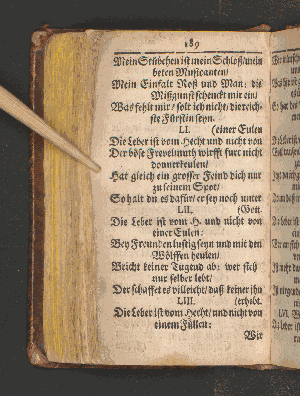 189
Mein Stübchen ist mein Schloß/mein
beten Musicanten/
Mein Einfalt Roß und Man: die
Mißgunst schenckt mir ein/
Was fehlt mir/ solt ich nicht/ die reich-
ste Fürstin seyn.
LI. (einer Eulen
Die Leber ist vom Hecht und nicht von
Der böse Frevelmuth wirfft kurc nicht
donnerkeulen/
Hat gleich ein grosser Feind dich nur
zu seinem Spot/
So halt du es dafür/ er sey noch unter
LII. (Gott.
Die Leber ist vom H. und nicht von
einer Eulen:
Bey Freunden lustig seyn und mit den
Wölffen heulen/
Bricht keiner Tugend ab: wer sich
nur selber lebt/
Der schaffet es villeicht/ daß keiner ihn
LIII. (erhebt.
Die Leber ist vom Hecht/ und nicht von
einem Füllen:
Wir